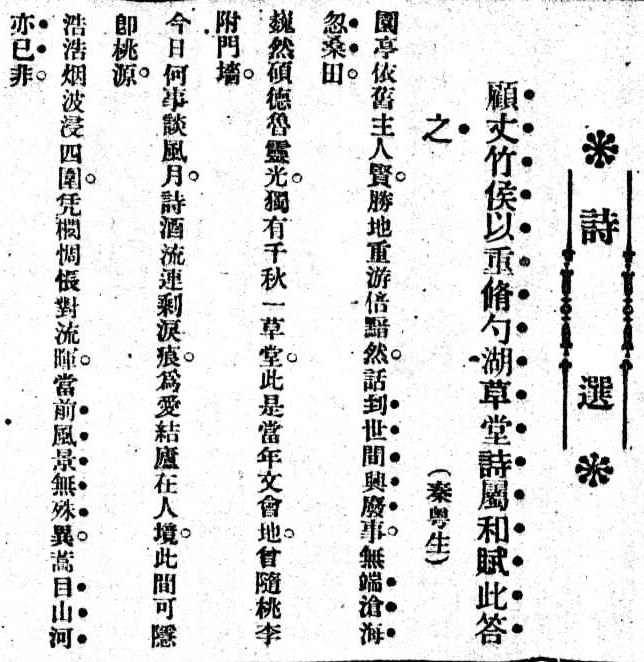 詩選
顧丈竹侯以重脩勺湖草堂詩屬和賦此答
之
（秦粤生）
園亭依舊主人賢。勝地重游倍黯然。話到世間興廢事。無端滄海
忽桑田。
巍然碩德魯靈光。獨有千秋一草堂。此是當年文會地。曾隨桃李
附門墻。
今日何事談風月。詩酒流連剩淚痕。爲愛結廬在人境。此間可隱
卽桃源。
浩浩烟波浸四圍。凭欄惆悵對流暉。當前風景無殊異。蒿目山河
亦已非。